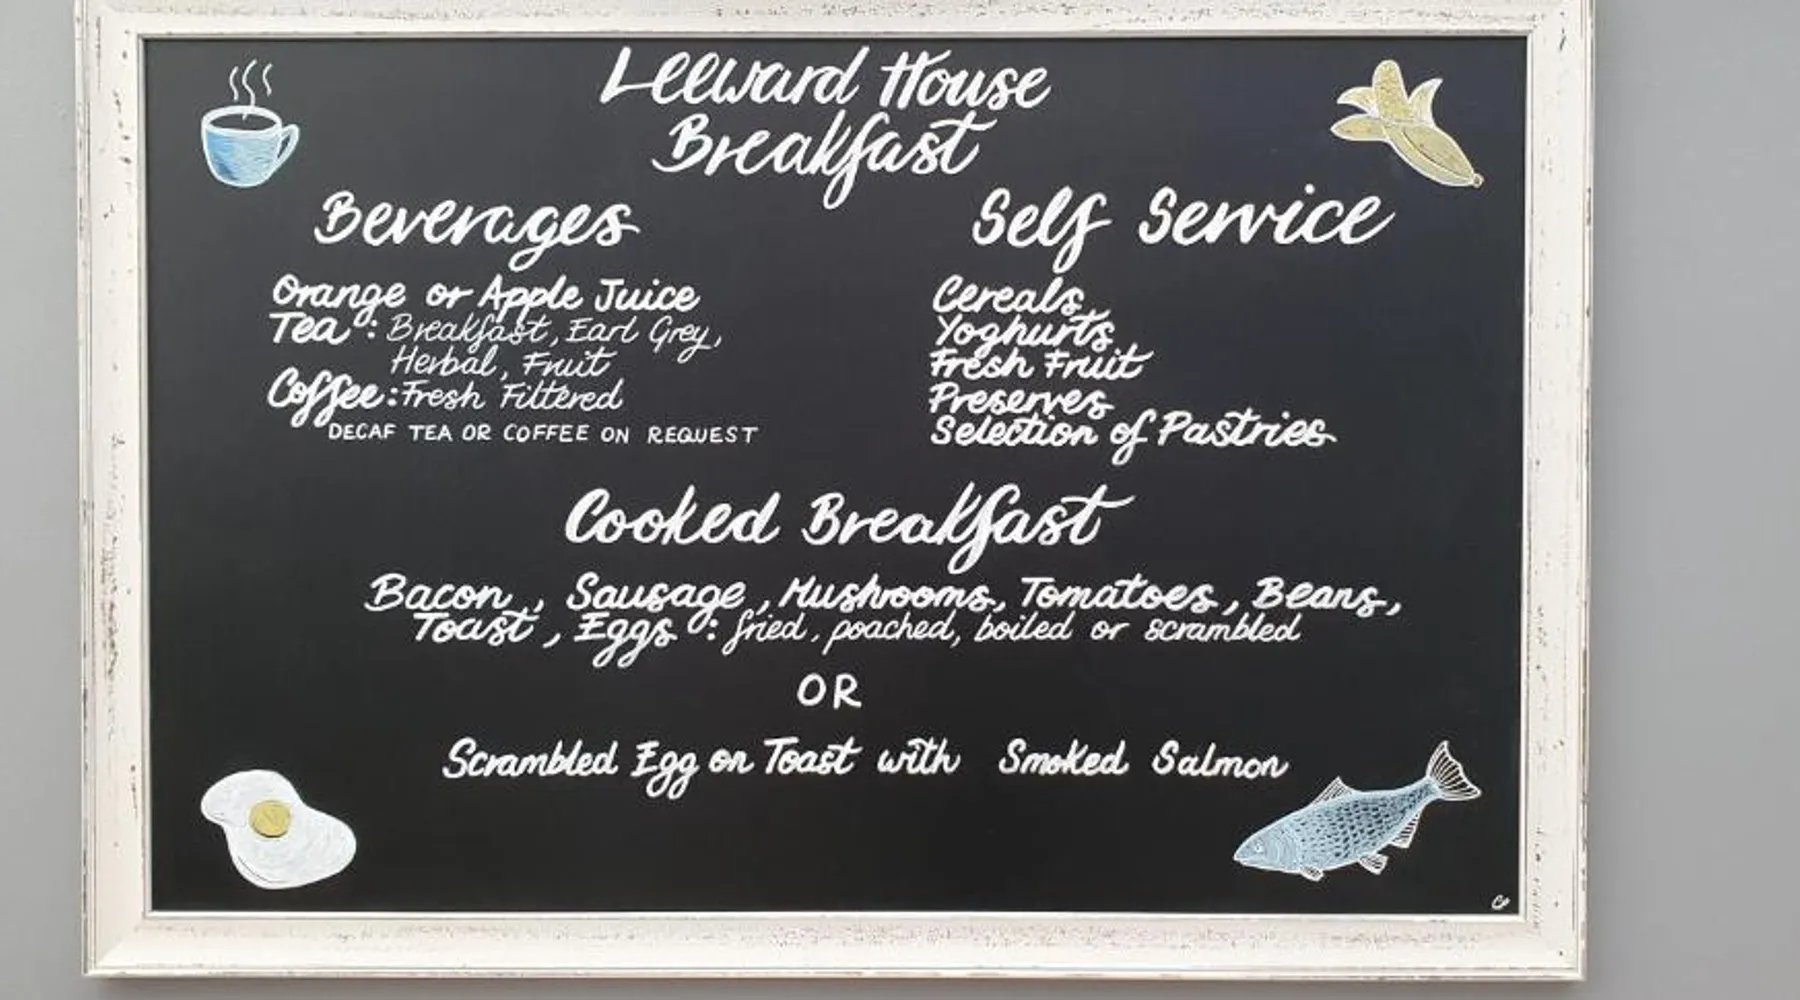 Leeward House
Breakfast
Beverages
Orange or Apple Juice
Tea : Breakfast, Earl Grey,
Herbal, Fruit
Coffee : Fresh Filtered
DECAF TEA OR COFFEE ON REQUEST
Self Service
Cereals
Yoghurts
Fresh Fruit
Preserves
Selection of Pastries
Cooked Breakfast
Bacon, Sausage, Mushrooms, Tomatoes, Beans,
Toast, Eggs : fried, poached, boiled or scrambled
OR
Scrambled Egg on Toast with Smoked Salmon